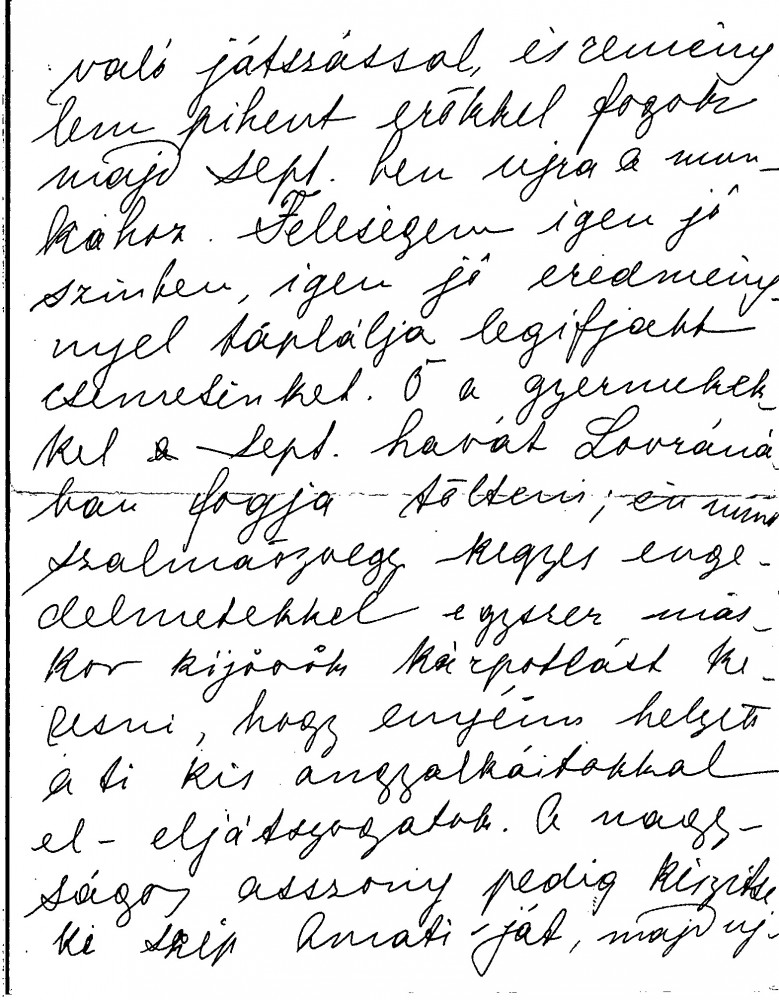 való játszással, és remény
lem pihent erőkkel fogok
majd Sept. ben ujra a mun-
kához. Feleségem igen jó
szinben, igen jó eredmény-
nyel táplálja legifjabb
csemeténket. Ő a gyermekek-
kel a Sept. havát Lovráná-
ban fogja tölteni; én mint
szalmaözvegy kegyes enge-
delmetekkel egyszer más-
kor kijövök kárpótlást ke-
resni, hogy enyéim helyett
a ti kis angyalkáitokkal
el- eljátszogatok. A nagy-
ságos asszony pedig készitse
ki szép Amati-ját, majd uj-